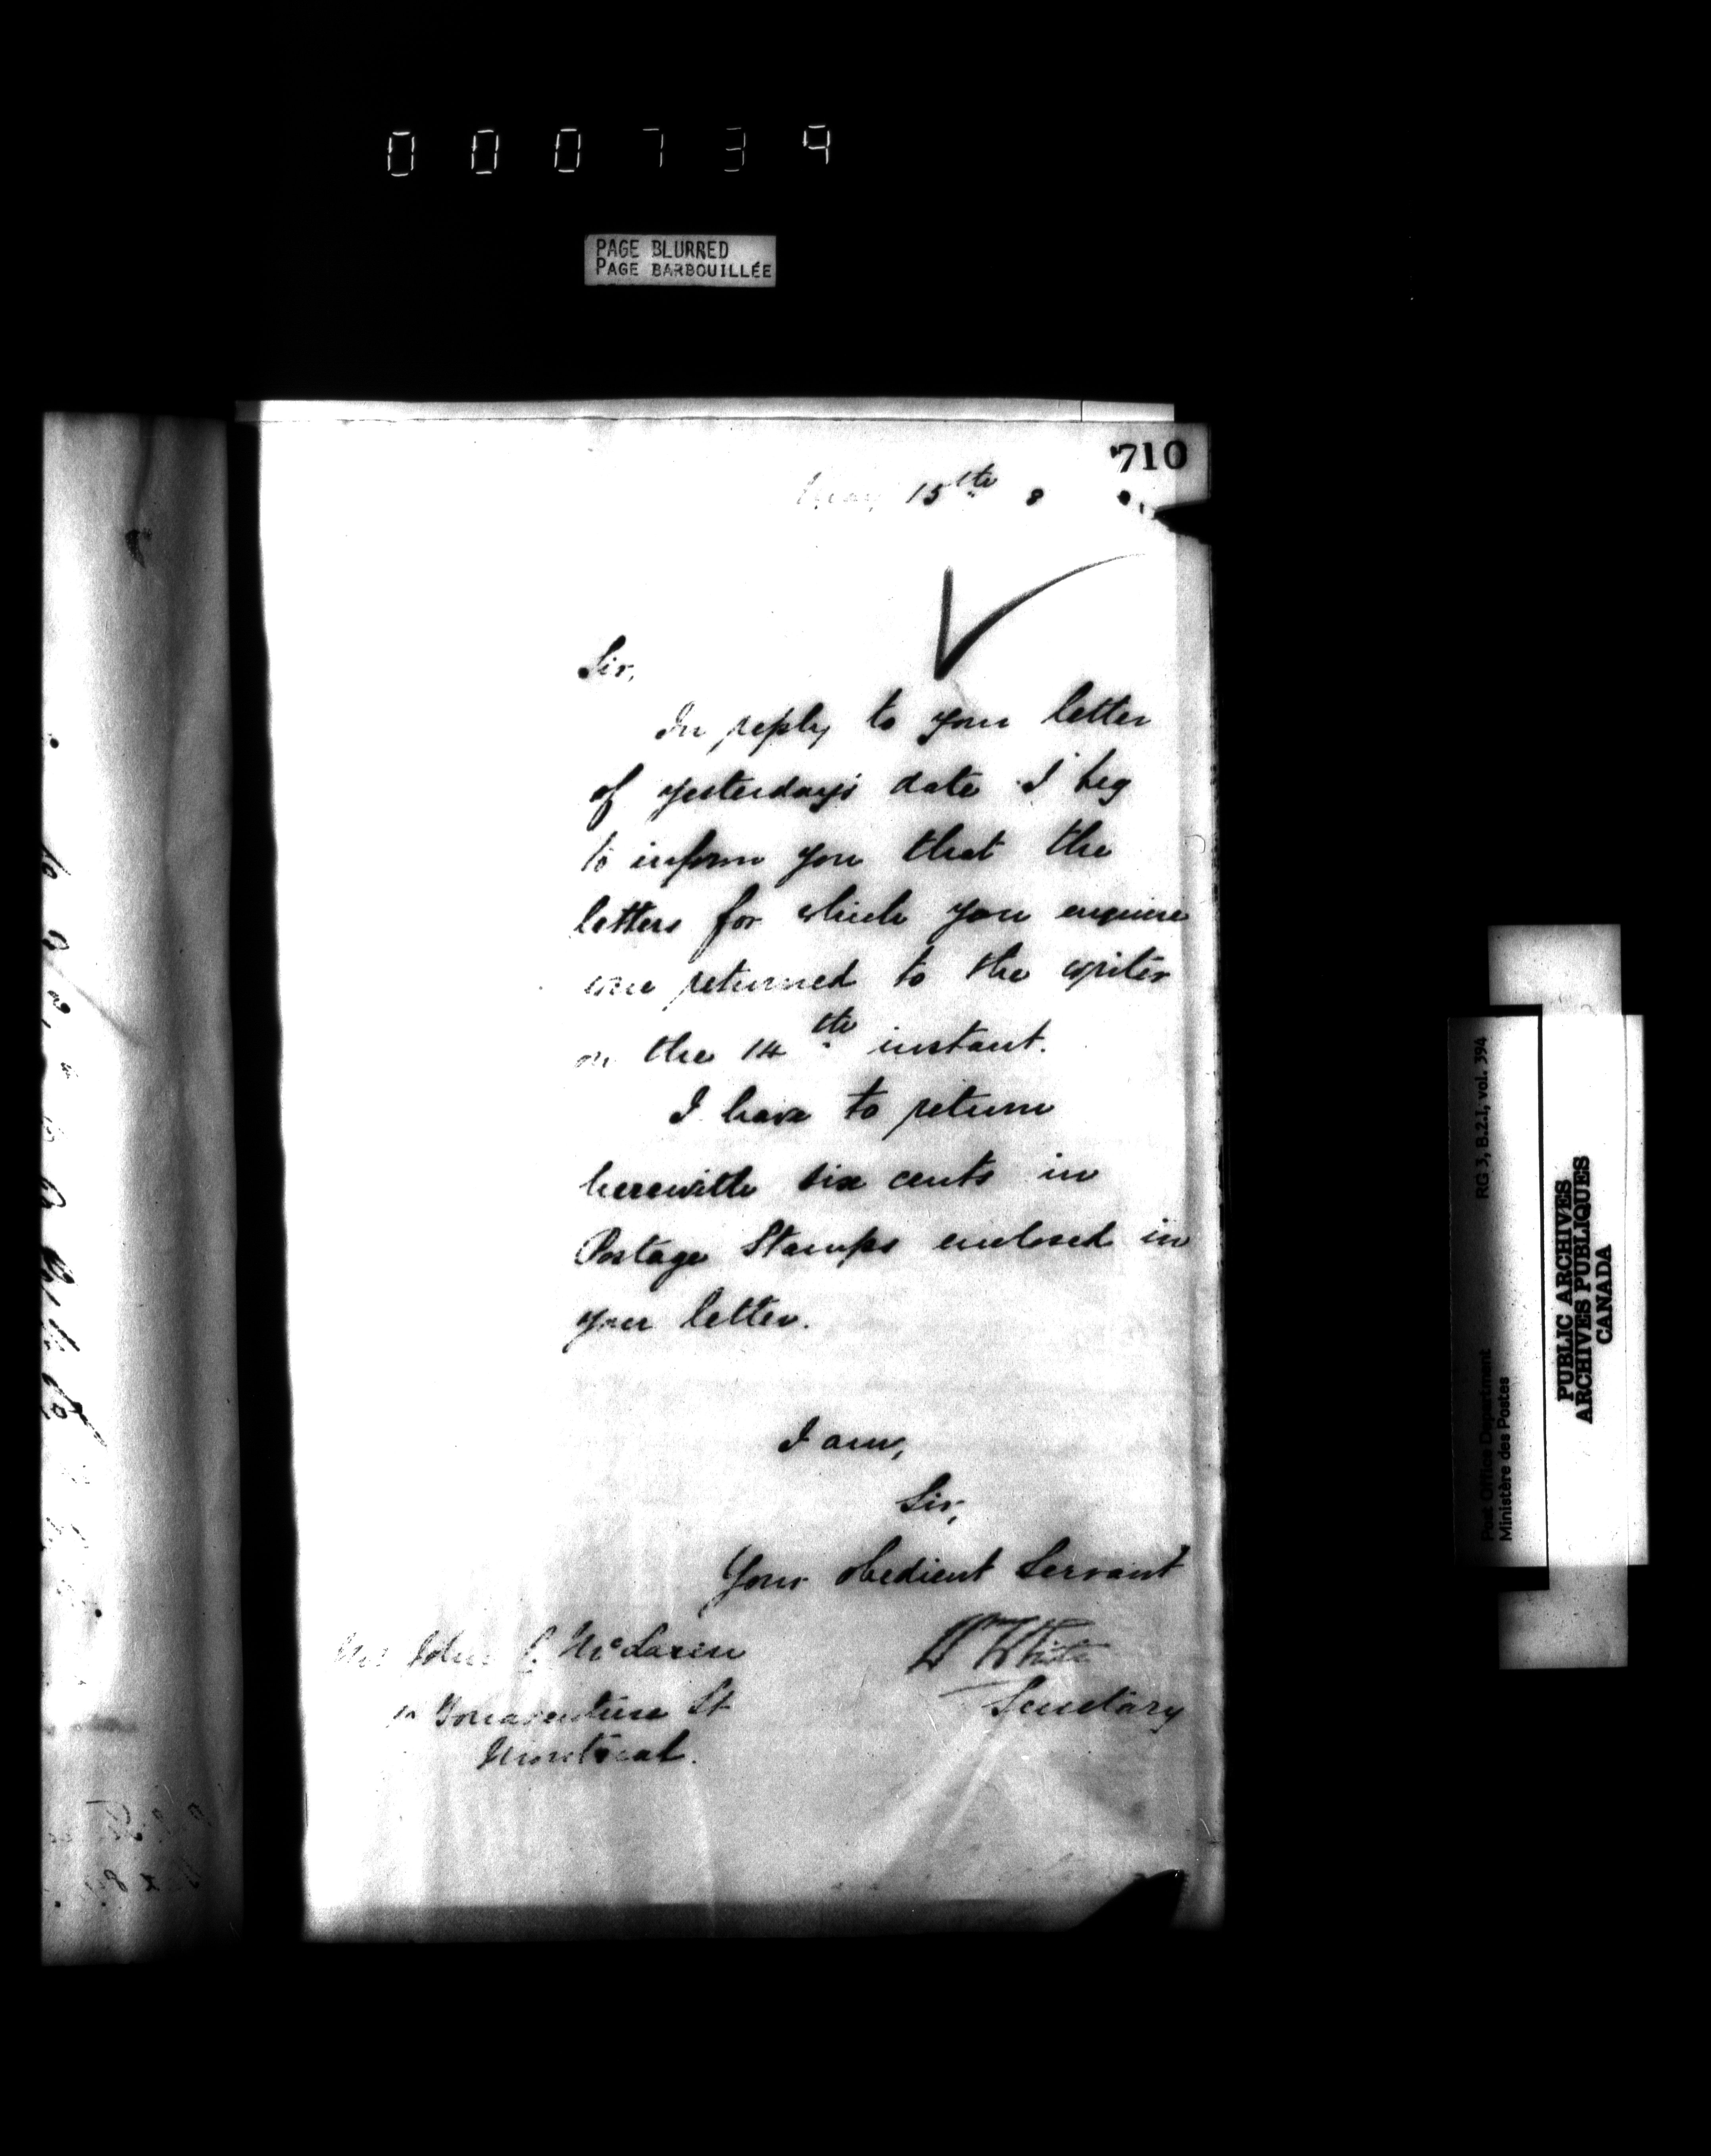 000739
PAGE BLURRED
PAGE BARBOUILLÉE
710
May 15th 8
Sir,
In reply to your letter
of yesterday's date I beg
to inform you that the
letters for which you enquire
were returned to the writer
on the 14th instant.
I have to return
herewith six cents in
Postage Stamps enclosed in
your letter.
I am,
Sir,
Your obedient Servant
John McLaren
W White
Bonaventure St
Secretary
Montreal.
RG 3, B.2.1, vol. 394
Post Office Department
Ministère des Postes
PUBLIC ARCHIVES
ARCHIVES PUBLIQUES
CANADA